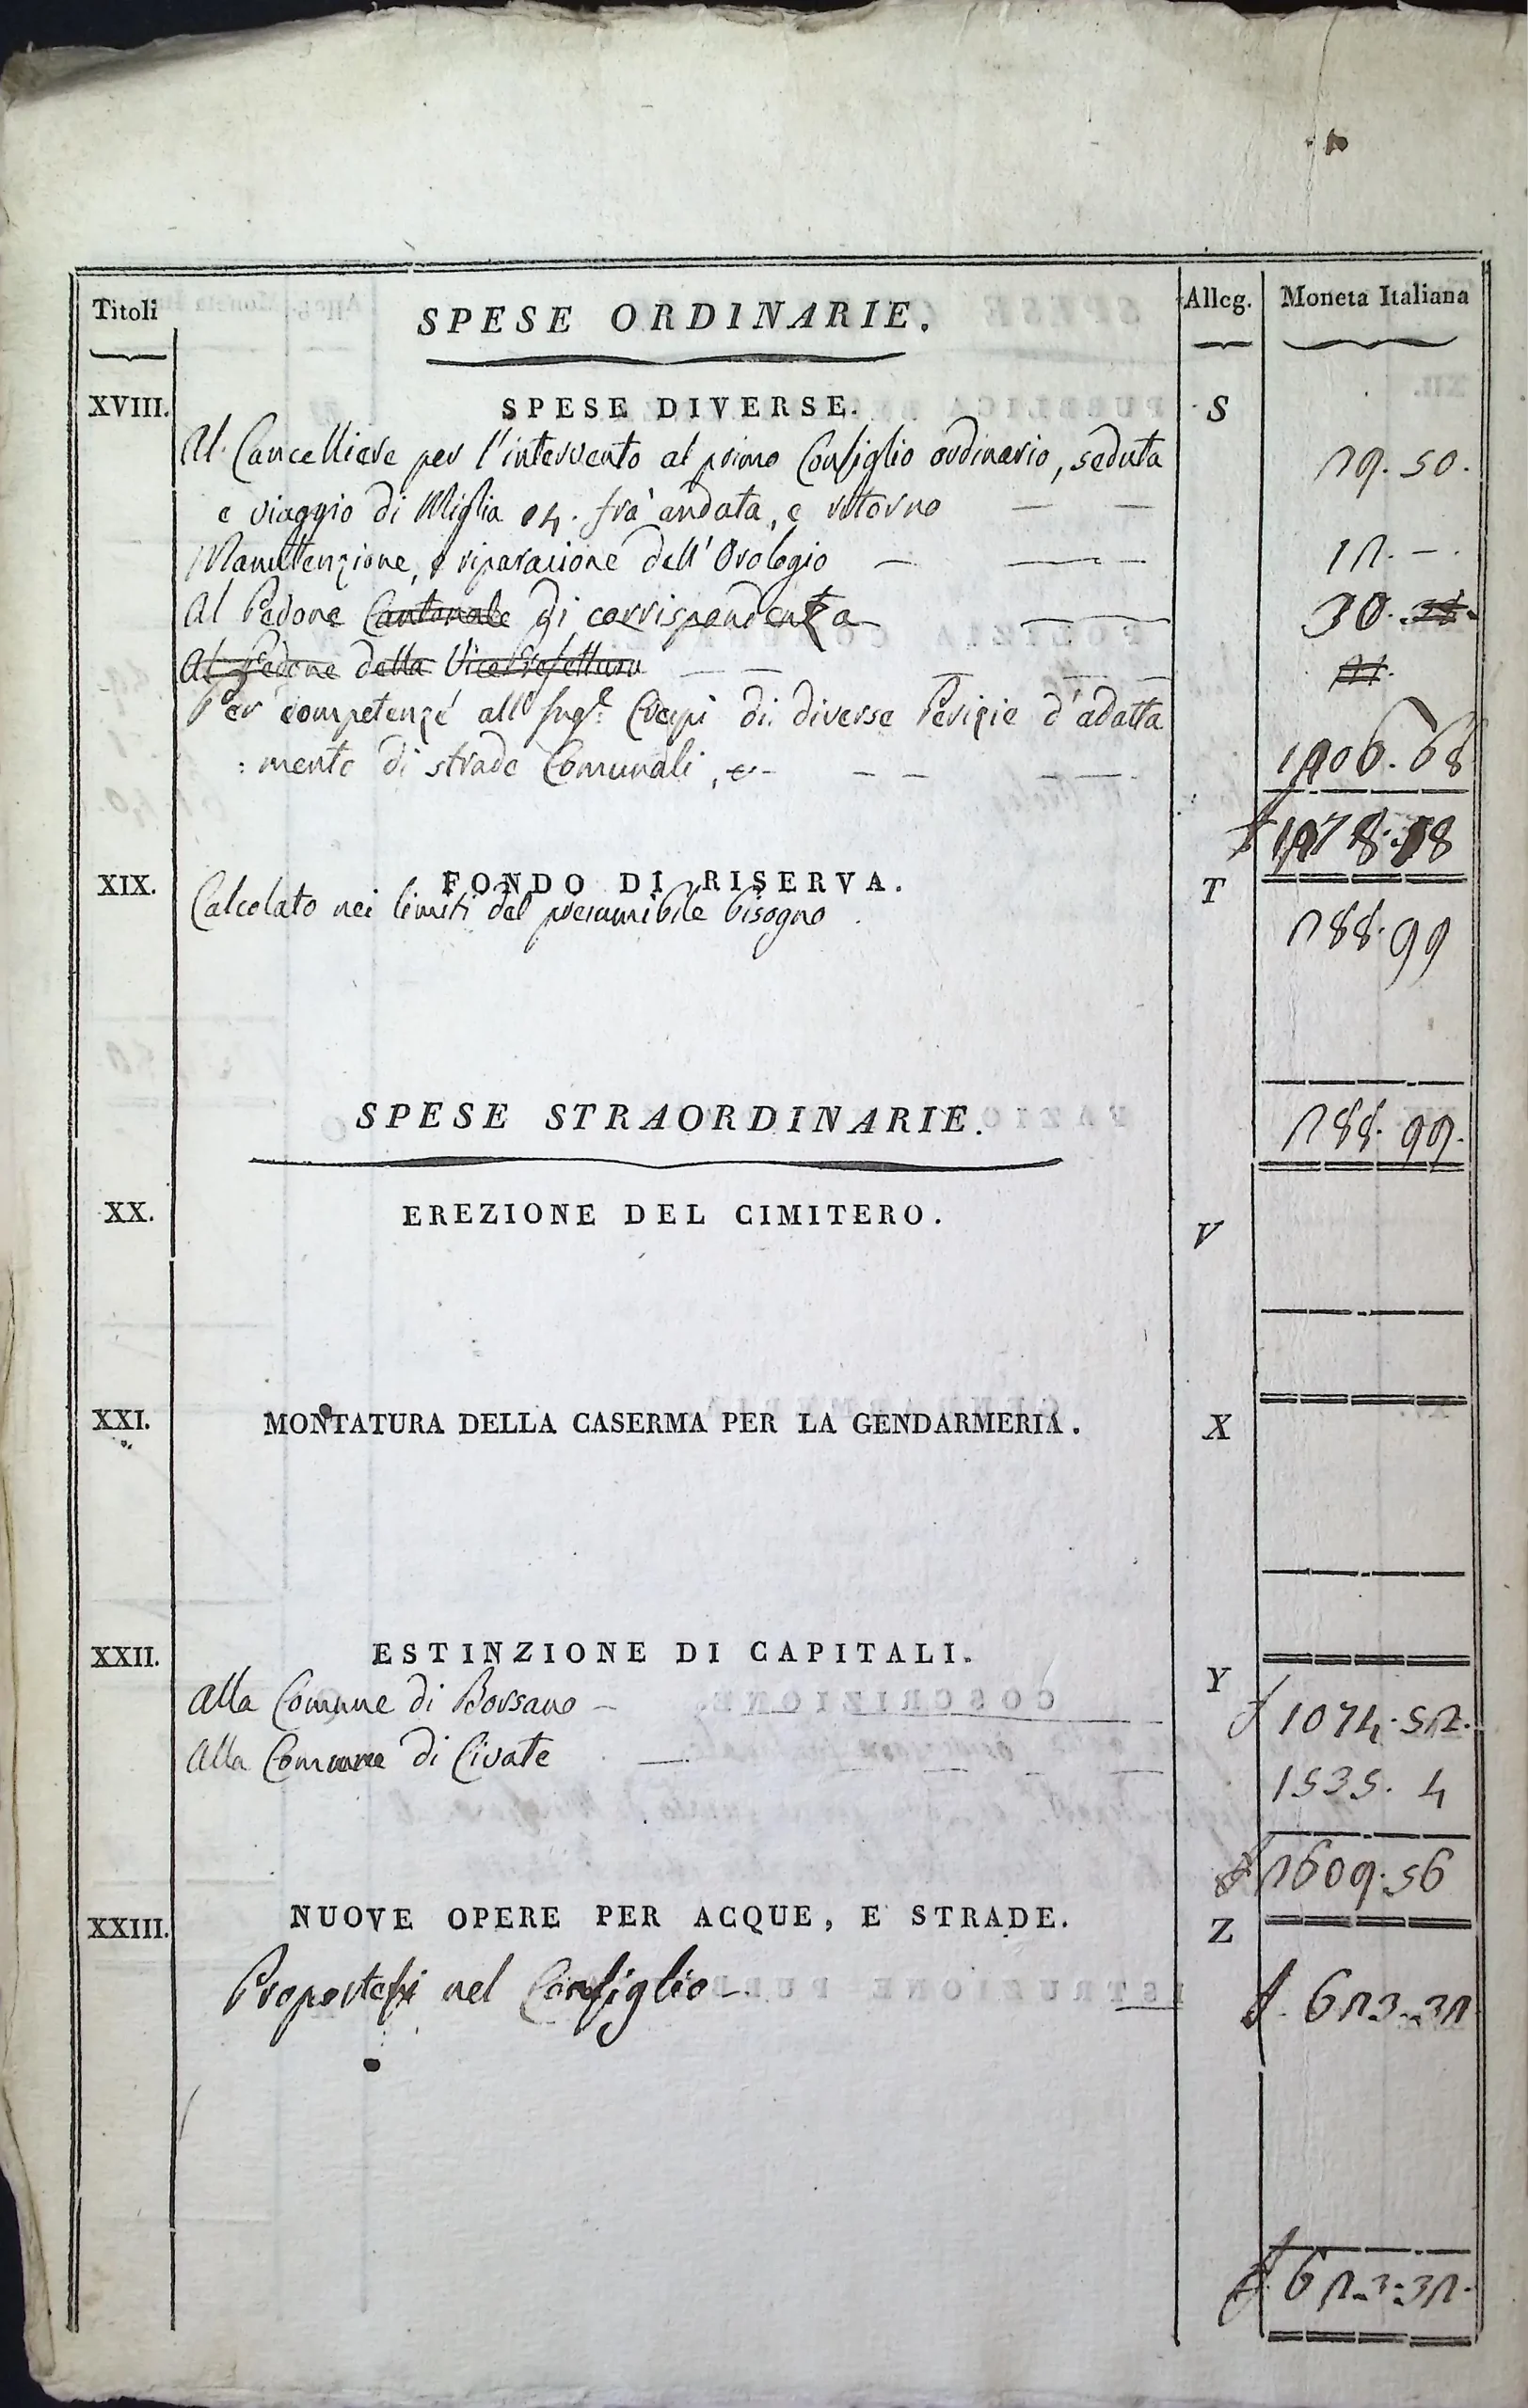 Titoli
SPESE ORDINARIE.
Alleg.
Moneta Italiana
XVIII.
SPESE DIVERSE.
S
Al Cancelliere per l'intervento al primo Consiglio ordinario, seduta
29.50.
e viaggio di Miglia 24. fra andata, e ritorno
Manuttenzione, e riparazione dell'Orologio
12.-.
Al Pedone Cantonale di corrispondenza
30.
Al Pedone della Vice Prefettura
Per competenze all' Ing.r Crespi di diverse Perizie d'adatta
:mento di strade Comunali,
1206.68
1278.18
XIX.
FONDO DI RISERVA.
T
Calcolato nei limiti del presumibile bisogno.
288.99
SPESE STRAORDINARIE.
288.99.
XX.
EREZIONE DEL CIMITERO.
V
XXI.
MONTATURA DELLA CASERMA PER LA GENDARMERIA.
X
XXII.
ESTINZIONE DI CAPITALI.
Y
alla Comune di Borsano
1074.52.
alla Comune di Civate
1535. 4
2609.56
XXIII.
NUOVE OPERE PER ACQUE, E STRADE.
Z
Propostesi nel Consiglio
623.32
623:32.